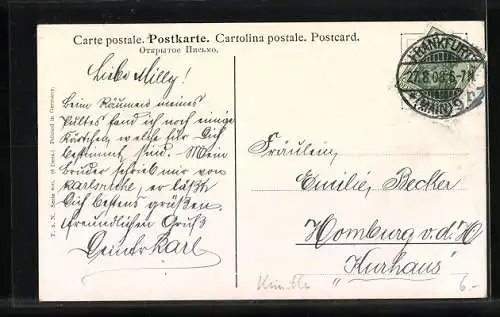 Carte postale. Postkarte. Cartolina postale. Postcard.
Открытое Письмо.
FRANKFURT
27.8.08.6-7N
(MAIN) 9
Liebe Milly!
Beim Räumen meines
Pultes fand ich noch einige
Kärtchen, welche für Dich
bestimmt sind. – Mein
Bruder schrieb mir von
Karlsruhe, er läßt
Dich bestens grüßen.
Freundlichen Gruß
Dein Karl
Fräulein,
Emilie Becker
Homburg v.d.H
"Kurhaus"
6.-
T. S. N. Serie
Printed in Germany.